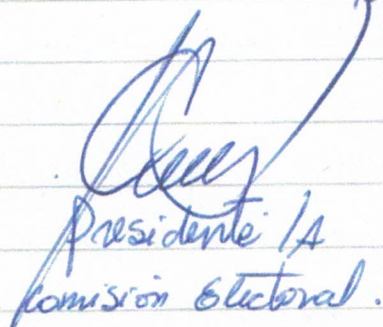 Presidente /A
Comisión Electoral.